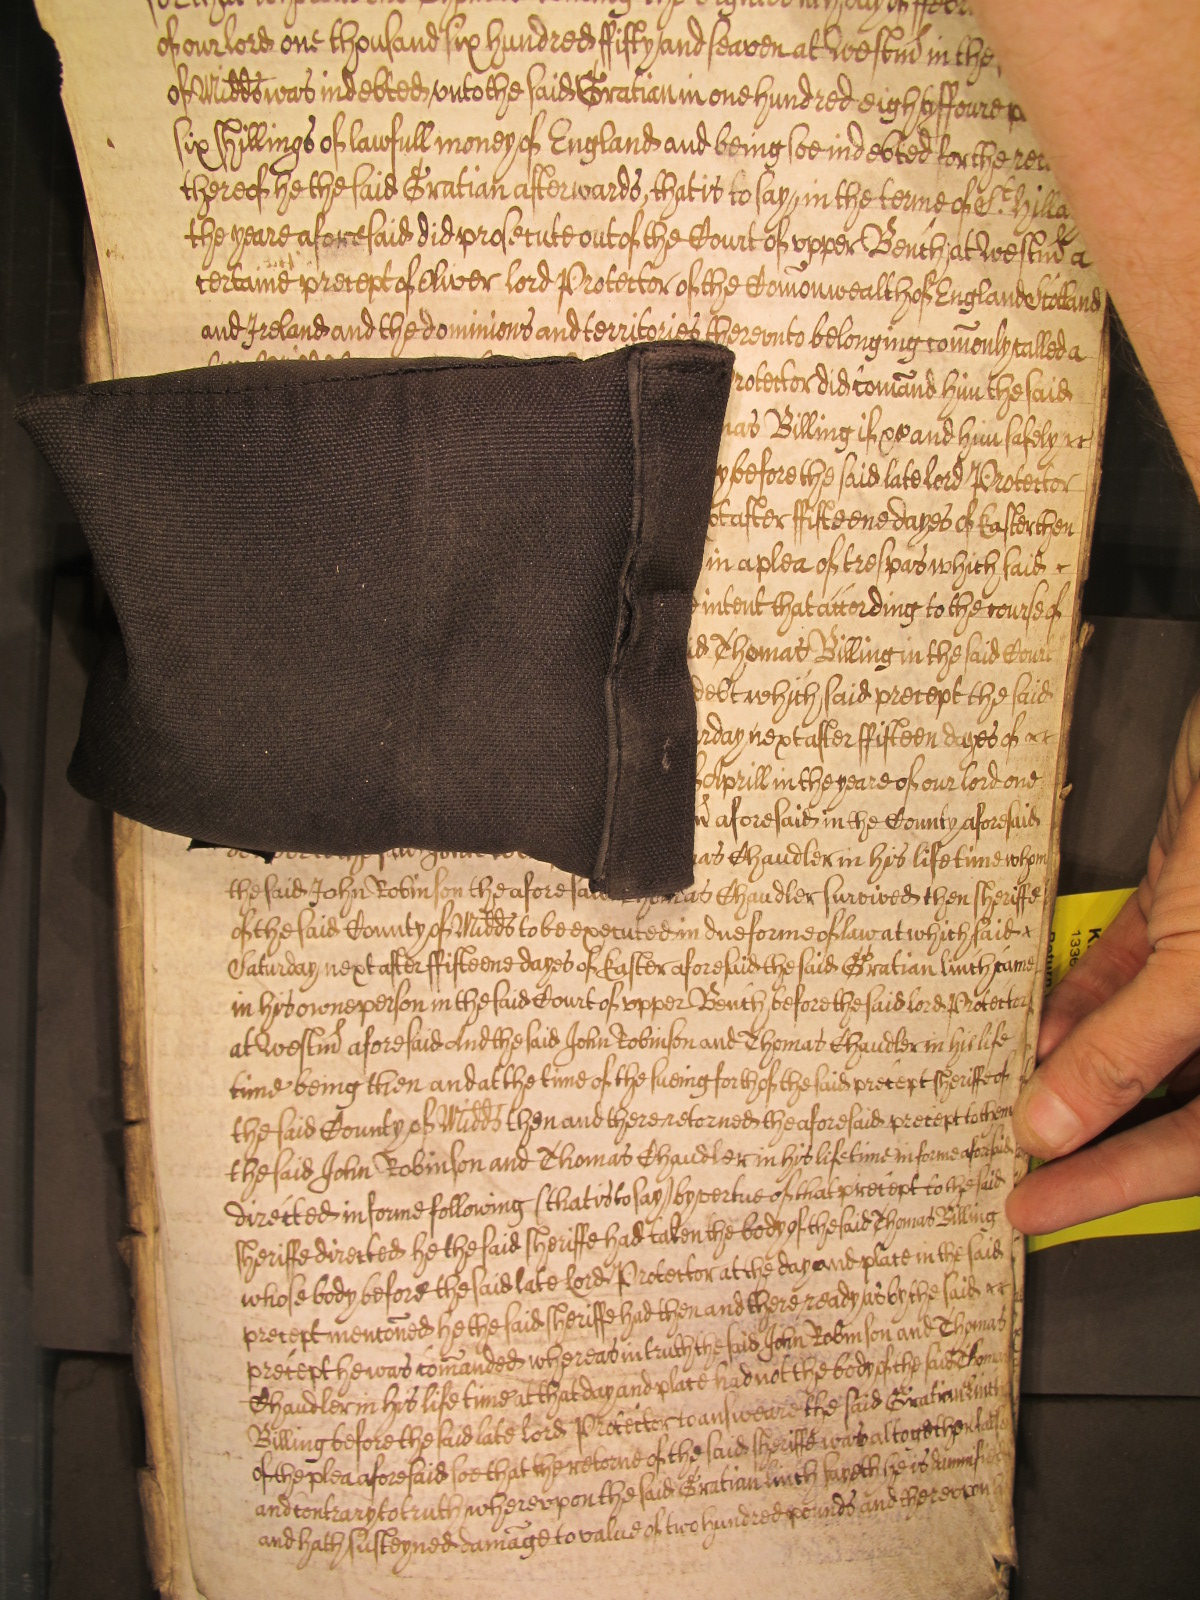 of our lord one thousand six hundred fifty and seaven at Westmr in the
of Midds was indebted unto the said Gratian in one hundred eighty ffoure
six shillings of lawfull money of England and being soe indebted for the
thereof he the said Gratian afterwards, that is to say, in the terme of St. Hilla
the yeare aforesaid did prosecute out of the Court of upper Bench at Westmr a
certaine precept of Oliver lord Protector of the Comonwealth of England Scotland
and Ireland and the dominions and territories thereunto belonging comonly called a
Protector did comand him the said
Billing if &c and him safely &c
before the said late lord Protector
after ffifteene dayes of Easter then
in a plea of trespas which said
intent that according to the course of
Thomas Billing in the said Court
debt which said precept the said
next after ffifteen dayes of &c
of Aprill in the yeare of our lord one
aforesaid in the County aforesaid
Chaudler in his life time whom
the said John Robinson the aforesaid Thomas Chaudler survived then sheriffe
of the said County of Midds to be executed in due forme of law at which said
Saturday next after ffifteene dayes of Easter aforesaid the said Gratian linch came
in his owne person in the said Court of upper Bench before the said lord Protector
at Westmr aforesaid And the said John Robinson and Thomas Chaudler in his life
time being then and at the time of the sueing forth of the said precept sheriffe of
the said County of Midds then and there retorned the aforesaid precept to them
the said John Robinson and Thomas Chaudler in his life time in forme aforesaid
directed in forme following (that is to say) by vertue of that precept to the said
sheriffe directed he the said sheriffe had taken the body of the said Thomas Billing
whose body before the said late lord Protector at the day and place in the said
precept mentoned he the said sheriffe had then and there ready as by the said &c
precept he was comanded whereas in truth the said John Robinson and Thomas
Chaudler in his life time at that day and place had not the body of the said Thomas
Billing before the said late lord Protector to answeare the said Gratian linch
of the plea aforesaid soe that the retorne of the said sheriffe was altogether false
and contrary to truth whereupon the said Gratian linch sayeth he is
and hath susteyned damage to value of two hundred pounds and thereupon